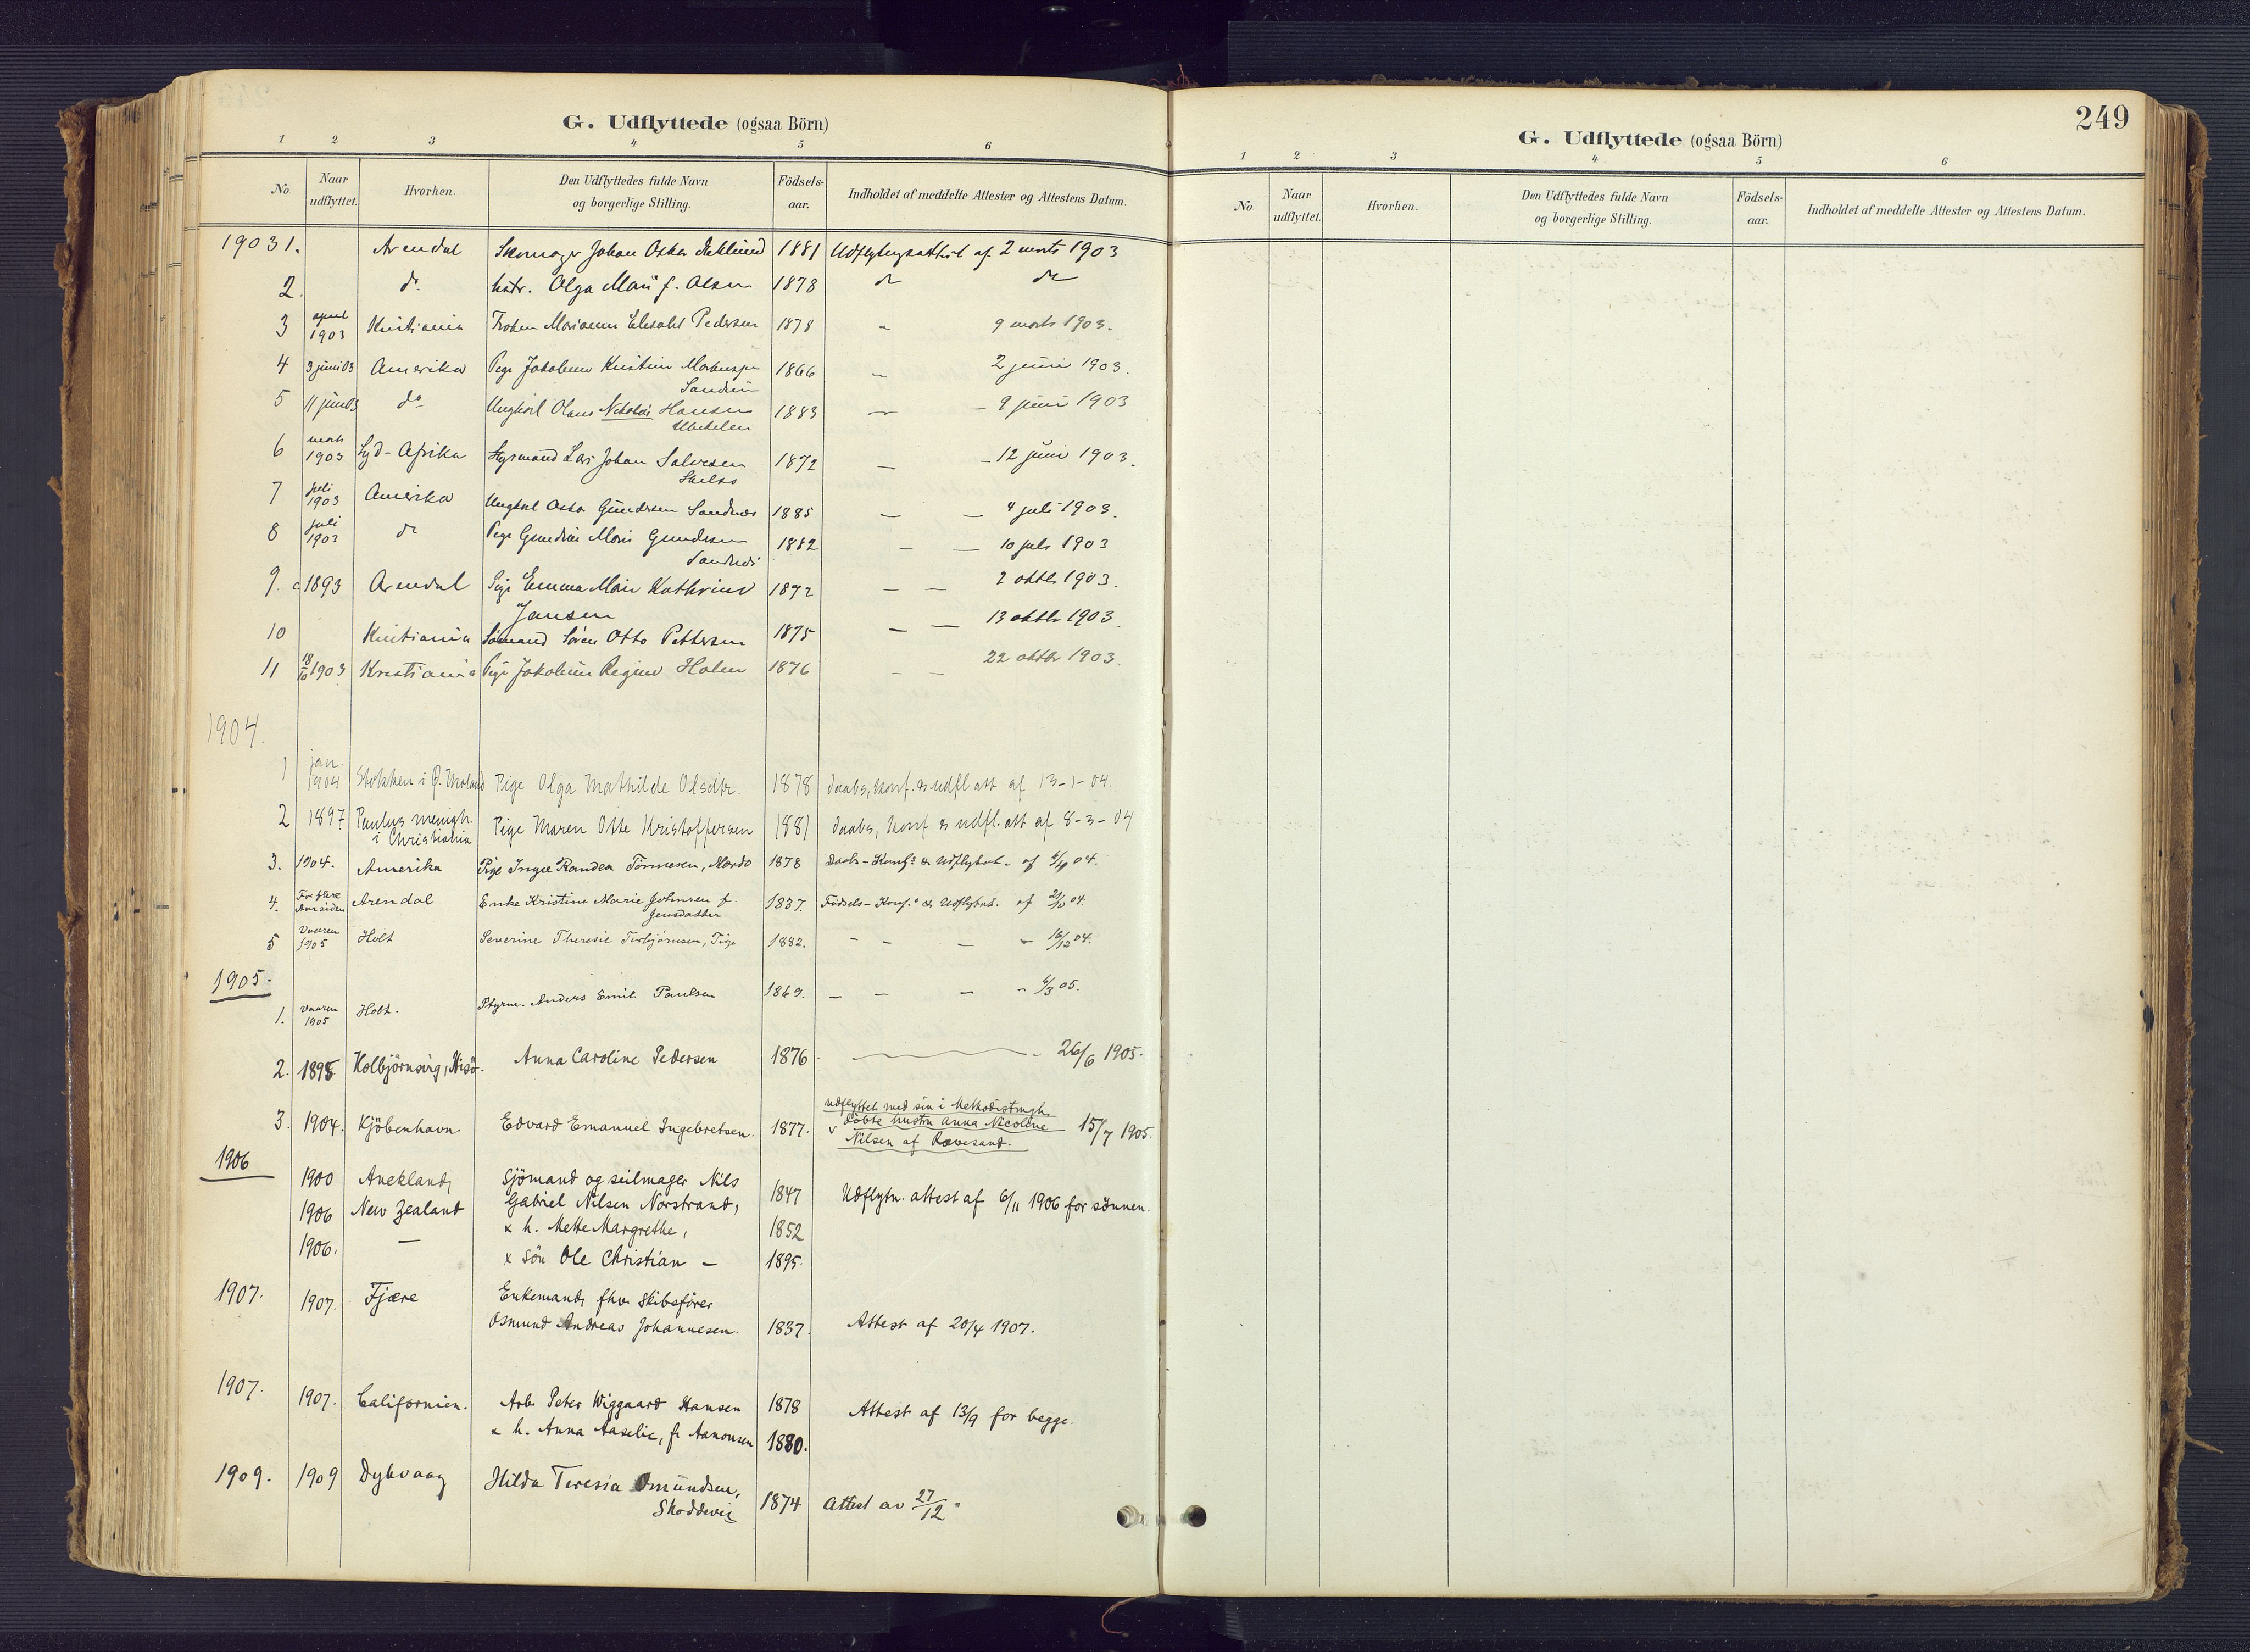 G. Udflyttede (ogsaa Börn)
1 2 3 4 5 6
No Naar udflyttet. Hvorhen. Den Udflyttedes fulde Navn og borgerlige Stilling. Födsels-aar. Indholdet af meddelte Attester og Attestens Datum.
1903 1. Arendal Skomager Johan Oskar 1881 Udflytngsattest af 2 marts 1903
2. do hstr. Olga Mari f. Olsen 1878 do do
3 april 1903 Kristiania Frøken Marianne Elisabet Pedersen 1878 " 9 marts 1903.
4 3 juni 03 Amerika Pige Jakobine Kristine 1866 — 2 juni 1903.
5 11 juni 03 do Ungkarl Olaus Nikolai Hansen 1883 — — 9 juni 1903
6 marts 1903 Syd-Afrika Styrmand Lars Johan Salvesen 1872 — — 12 juni 1903.
7 juli 1903 Amerika Ungkarl Oskar Gundersen Sandnes 1885 — — 4 juli 1903.
8 juli 1903 do Pige Gundine Marie Gundersen Sandnes 1882 — — 10 juli 1903
9. c 1893 Arendal Pige Emma Marie Kathrine Jansen 1872 — — 2 oktbr 1903.
10 Kristiania Sömand Sören Otto Pettersen 1875 — — 13 oktbr 1903.
11 18/10 1903 Kristiania Pige Jakobine Regine Holm 1876 — — 22 oktbr 1903.
1904.
1 jan. 1904 Stokken i Ø. Moland Pige Olga Mathilde Olsdtr. 1878 daabs, konf. & udfl att af 13-1-04.
2 1897 Paulus menigh. i Christiania Pige Maren Otte Kristoffersen 1881 daabs, konf & udfl. att af 8-3-04
3. 1904. Amerika Pige Inga Randea Tönnesen, Nardö 1878 Daabs-Konf. & Udflytat. af 04.
4. For flere Aar siden Arendal Enke Kristine Marie Johnsen f. Jensdatter 1837. Födsels-Konf. & Udflytat. af 21/10 04.
5 Vaaren 1905 Holt Severine Theresie Torbjörnsen, Pige 1882. — — — — 16/12 04.
1905.
1. Vaaren 1905 Holt. Styrm. Anders Emil Paulsen 1869. — — — — 6/3 05.
2. 1895 Kolbjörnsvig, Hisö. Anna Caroline Pedersen 1876. — 26/6 1905.
3. 1904. Kjöbenhavn. Edvard Emanuel Ingebretsen. 1877. udflyttet med sin i Methodistmgh. döbte hustru Anna Nicoline Nilsen af Revesand. 15/7 1905.
1906
1900 Auckland, Sjömand og seilmager Nils
1906 New Zealand Gabriel Nilsen Norstrand, 1847 Udflytn. attest af 6/11 1906 for sönnen.
1906. — x h. Mette Margrethe, 1852
x sön Ole Christian — 1895.
1907. 1907. Fjære Enkemand, fhv. skibsförer
Osmund Andreas Johannesen. 1837. Attest af 20/4 1907.
1907. 1907. Californien. Arb. Peter Wiggaard Hansen 1878 Attest af 13/9 for begge.
x h. Anna Aaselie, f. Aanonsen 1880.
1909. 1909 Dybvaag Hilda Teresia Omundsen, Skoddevig 1874 Attest av 27/12
249
G. Udflyttede (ogsaa Börn)
1 2 3 4 5 6
No Naar udflyttet. Hvorhen. Den Udflyttedes fulde Navn og borgerlige Stilling. Födsels-aar. Indholdet af meddelte Attester og Attestens Datum.